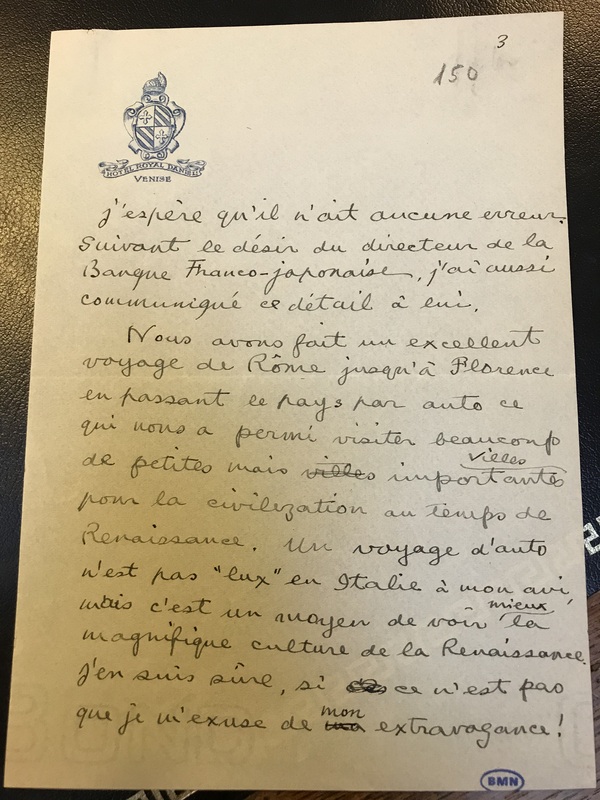 3
150
HOTEL ROYAL DANIELI
VENISE
j'espère qu'il n'ait aucune erreur.
Suivant le désir du directeur de la
Banque Franco-japonaise, j'ai aussi
communiqué ce détail à lui.
Nous avons fait un excellent
voyage de Rôme jusqu'à Florence
en passant le pays par auto ce
qui nous a permi visiter beaucoup
de petites mais villes importantes
villes
pour la civilization au temps de
Renaissance. Un voyage d'auto
n'est pas "lux" en Italie à mon avi,
mais c'est un moyen de voir la
mieux
magnifique culture de la Renaissance.
J'en suis sûre, si ce n'est pas
que je m'exuse de extravagance!
mon
BMN